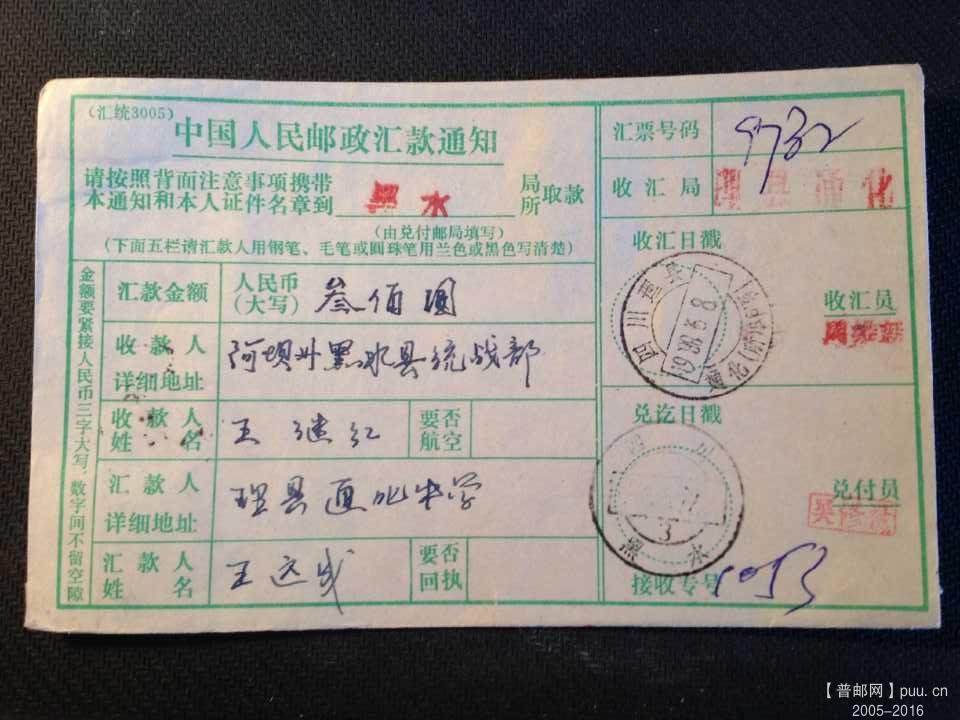 (汇统3005)
中国人民邮政汇款通知
请按照背面注意事项携带
本通知和本人证件名章到 黑水 局所 取款
(由兑付邮局填写)
(下面五栏请汇款人用钢笔、毛笔或圆珠笔用兰色或黑色写清楚)
金额要紧接人民币三字大写,数字间不留空隙
汇款金额 人民币(大写) 叁佰圆
收款人详细地址 阿坝州黑水县统战部
收款人姓名 王继红 要否航空
汇款人详细地址 理县通化中学
汇款人姓名 王达成 要否回执
汇票号码 9732
收汇局 理县通化
收汇日戳
四川 通化
收汇员
兑讫日戳
四川 3 黑水
兑付员
接收专号 1053
【普邮网】puu.cn
2005-2016